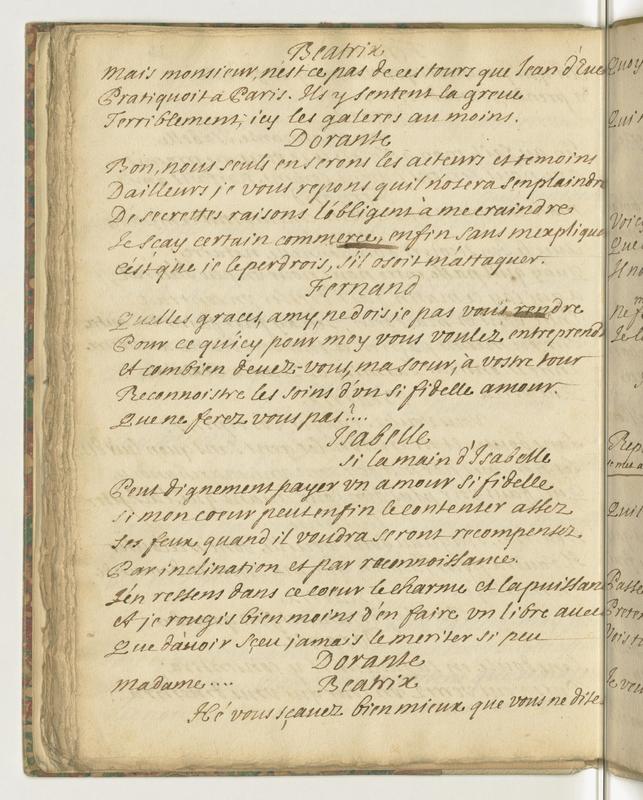 Beatrix
Mais monsieur, n'est ce pas de ces tours que Jean d'Eue
Pratiquoit a Paris. Ils y sentent la greue
Terriblement, icy les galeres au moins.
Dorante
Bon, nous seuls en serons les acteurs et temoins
Dailleurs je vous repons quil n'osera s'enplaindre
De secrettes raisons l'obligent à me craindre
Je scay certain commerce, enfin sans mexplique
C'est que je le perdrois, s'il osoit m'attaquer.
Fernand
Quelles graces, amy, ne dois je pas vous rendre
Pour ce qu'icy pour moy vous voulez entreprend
Et combien deuez-vous, ma soeur, a vostre tour
Reconnoistre les soins d'vn si fidelle amour.
Que ne ferez vous pas?...
Isabelle
Si la main d'Isabelle
Peut dignement payer vn amour si fidelle
Si mon coeur peut enfin le contenter assez
Ses feux quand il voudra seront recompensez
Par inclination et par reconnoissance.
J'en ressens dans ce coeur le charme et la puissan
Et je rougis bien moins d'en faire vn libre aueu
Que d'auoir sçeu jamais le meriter si peu
Dorante
Madame....
Beatrix
Hé vous sçauez bien mieux que vous ne dite